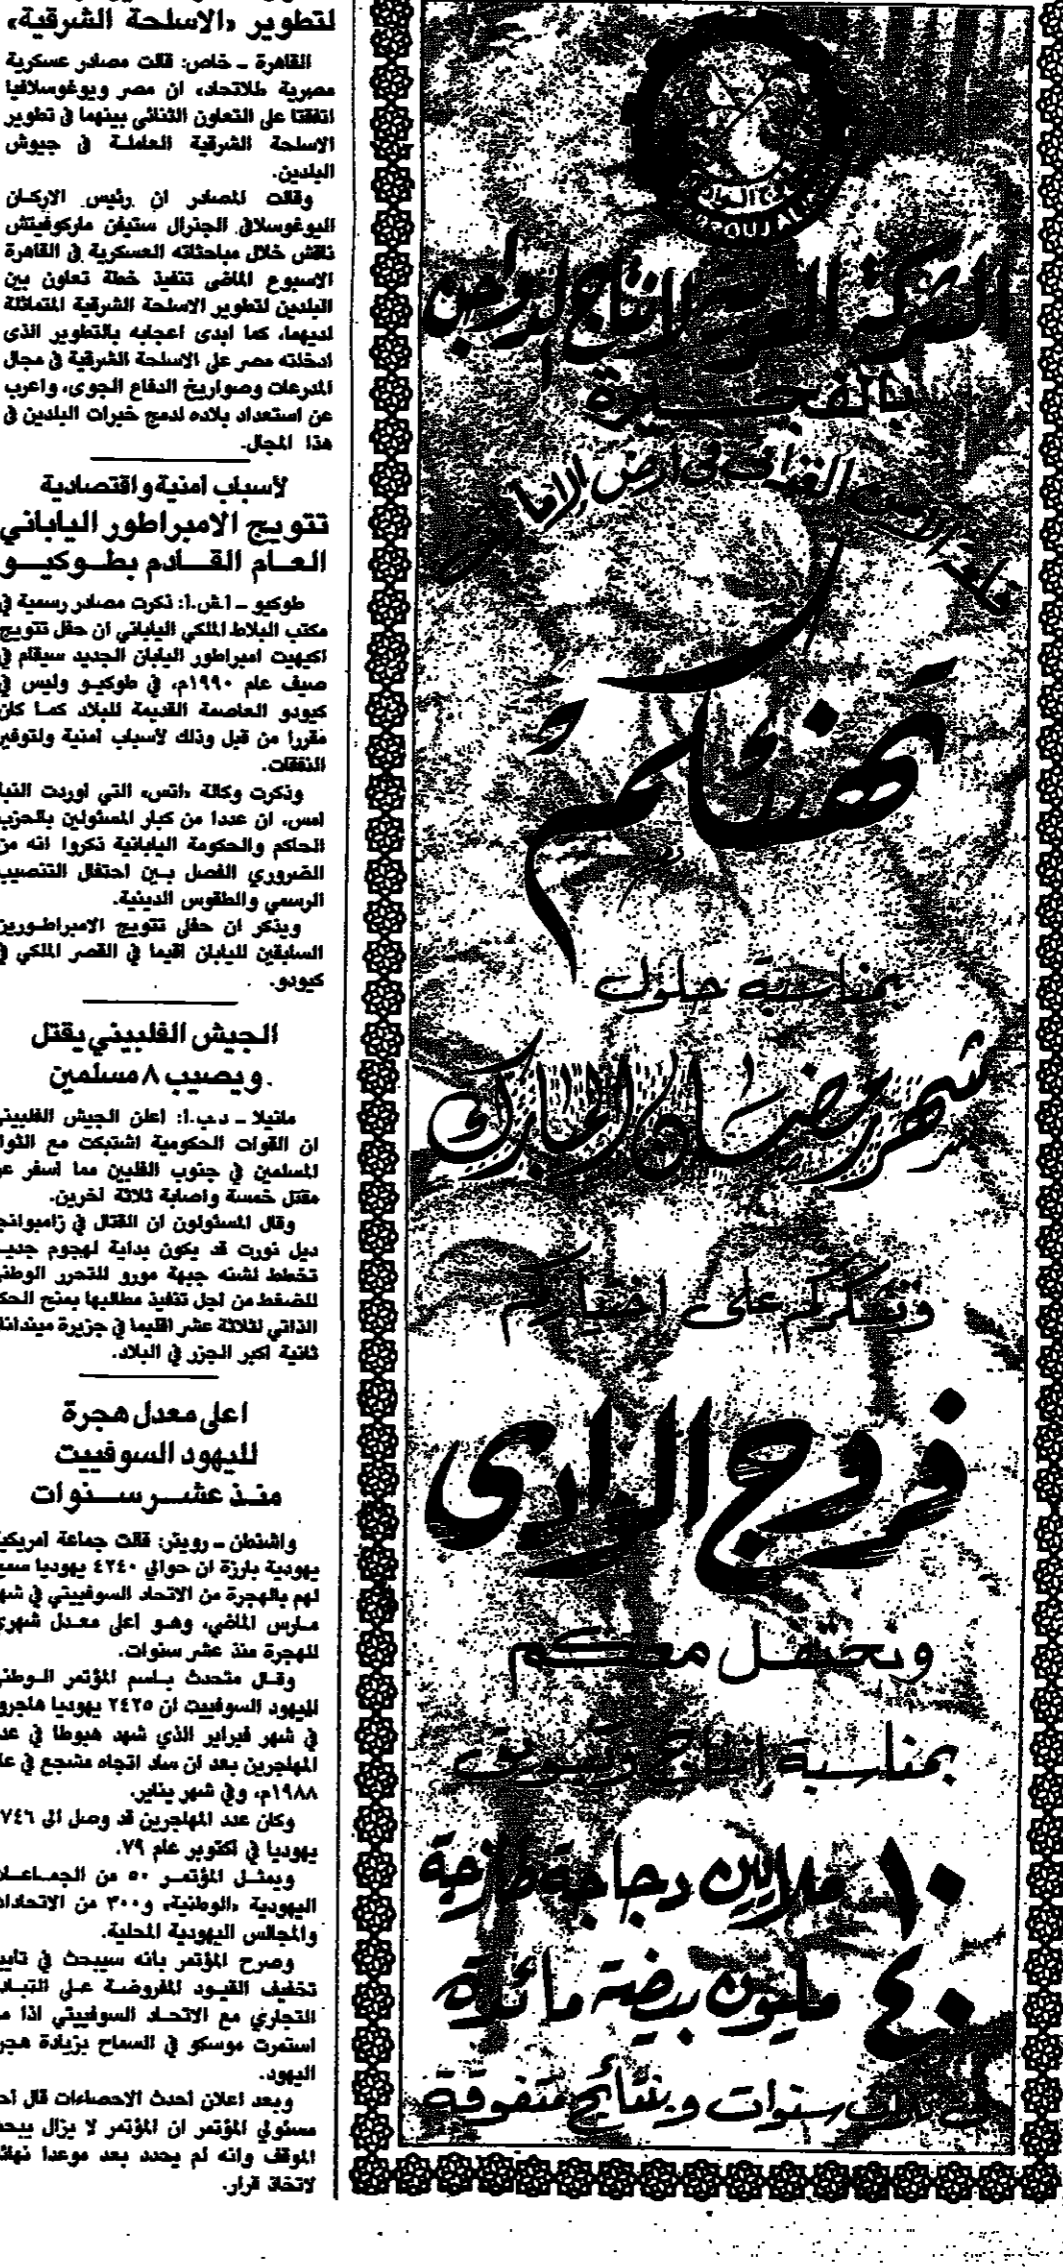 لتطوير «الاسلحة الشرقية»
القاهرة ـ خاص: قالت مصادر عسكرية
مصرية «للاتحاد» ان مصر ويوغوسلافيا
اتفقتا على التعاون الثنائي بينهما في تطوير
الاسلحة الشرقية العاملة في جيوش
البلدين.
وقالت المصادر ان رئيس الاركان
اليوغوسلافي الجنرال ستيفن ماركوفيتش
ناقش خلال مباحثاته العسكرية في القاهرة
الاسبوع الماضي تنفيذ خطة تعاون بين
البلدين لتطوير الاسلحة الشرقية المتماثلة
لديهما، كما ابدى اعجابه بالتطوير الذي
ادخلته مصر على الاسلحة الشرقية في مجال
المدرعات وصواريخ الدفاع الجوي، واعرب
عن استعداد بلاده لدمج خبرات البلدين في
هذا المجال.
لأسباب امنية واقتصادية
تتويج الامبراطور الياباني
العام القادم بطوكيو
طوكيو ـ أ.ش.أ: ذكرت مصادر رسمية في
مكتب البلاط الملكي الياباني ان حفل تتويج
اكيهيت امبراطور اليابان الجديد سيقام في
صيف عام ١٩٩٠م، في طوكيو وليس في
كيودو العاصمة القديمة للبلاد كما كان
مقررا من قبل وذلك لأسباب امنية ولتوفير
النفقات.
وذكرت وكالة «اتس» التي اوردت النبا
امس، ان عددا من كبار المسئولين بالحزب
الحاكم والحكومة اليابانية ذكروا انه من
الضروري الفصل بين احتفال التنصيب
الرسمي والطقوس الدينية.
ويذكر ان حفلي تتويج الامبراطورين
السابقين لليابان اقيما في القصر الملكي في
كيودو.
الجيش الفلبيني يقتل
ويصيب ٨ مسلمين
مانيلا ـ د.ب.أ: أعلن الجيش الفلبيني
ان القوات الحكومية اشتبكت مع الثوا
المسلمين في جنوب الفلبين مما اسفر عن
مقتل خمسة واصابة ثلاثة اخرين.
وقال المسئولون ان القتال في زامبوانج
ديل نورت قد يكون بداية لهجوم جديـ
تخطط لشنه جبهة مورو للتحرر الوطني
للضغط من اجل تنفيذ مطالبها بمنح الحك
الذاتي لثلاثة عشر اقليما في جزيرة ميندانا
ثانية اكبر الجزر في البلاد.
اعلى معدل هجرة
لليهود السوفييت
منذ عشر سنوات
واشنطن ـ رويتر: قالت جماعة امريكية
يهودية بارزة ان حوالي ٤٢٤٠ يهوديا سمح
لهم بالهجرة من الاتحاد السوفييتي في شهر
مارس الماضي، وهو اعلى معدل شهري
للهجرة منذ عشر سنوات.
وقال متحدث باسم المؤتمر الوطني
لليهود السوفييت ان ٢٤٢٥ يهوديا هاجروا
في شهر فبراير الذي شهد هبوطا في عدد
المهاجرين بعد ان ساد اتجاه مشجع في عا
١٩٨٨م، وفي شهر يناير.
وكان عدد المهاجرين قد وصل الى ٧٤٦
يهوديا في اكتوبر عام ٧٩.
ويمثل المؤتمر ٥٠ من الجماعات
اليهودية «الوطنية» و٣٠٠ من الاتحادات
والمجالس اليهودية المحلية.
وصرح المؤتمر بانه سيبحث في تاييد
تخفيف القيود المفروضة على التبادل
التجاري مع الاتحاد السوفييتي اذا ما
استمرت موسكو في السماح بزيادة هجرة
اليهود.
وبعد اعلان احدث الاحصاءات قال احد
مسئولي المؤتمر ان المؤتمر لا يزال يبحث
الموقف وانه لم يحدد بعد موعدا نهائيا
لاتخاذ قرار.
الشركة العربية لانتاج الدواجن
بالفجيرة
الغذائي في ارض الامارات
تهنئكم
بمناسبة حلول
شهر رمضان المبارك
وتشكركم على اختياركم
فروج الوادى
وتحتفل معكم
بمناسبة انتاج وتسويق
١٠ ملايين دجاجة طازجة
٤٠ مليون بيضة مائدة
سنوات وبنتائج متفوقة